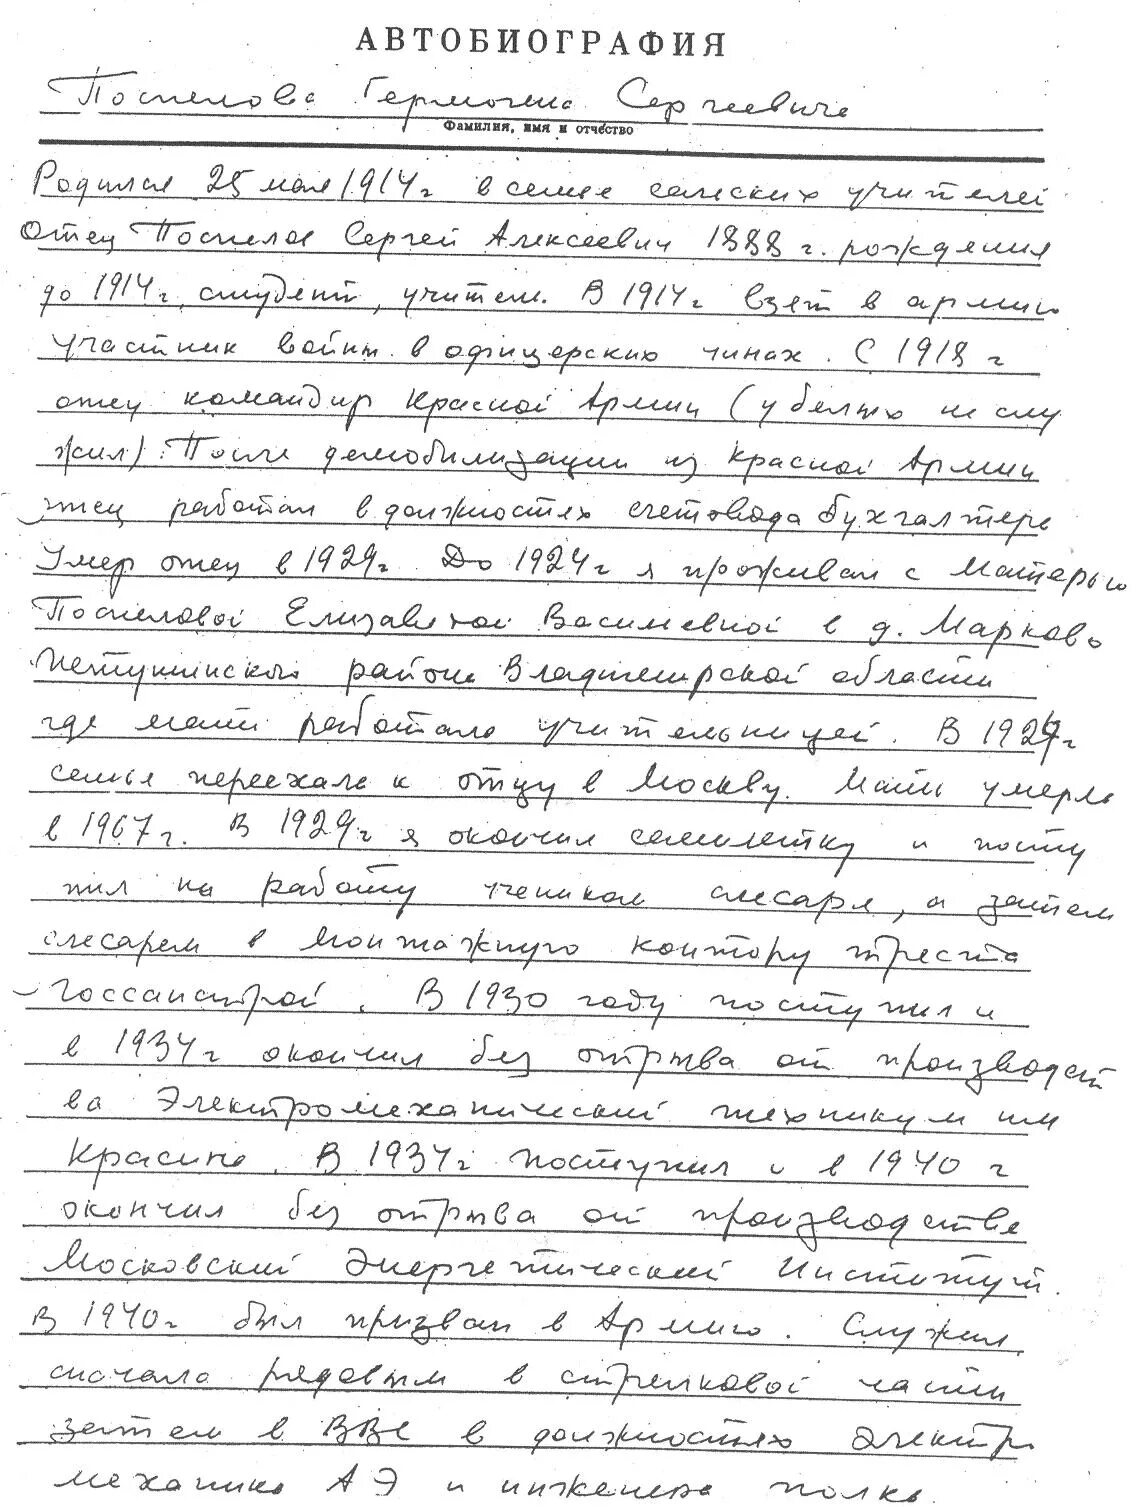 АВТОБИОГРАФИЯ
Поспелова Гермогена Сергеевича
Фамилия, имя и отчество
Родился 25 мая 1914г в семье сельских учителей
Отец Поспелов Сергей Алексеевич 1888 г. рождения
до 1914г, студент, учитель. В 1914г взят в армию
участник войны в офицерских чинах. С 1918 г
отец командир Красной Армии (у белых не слу
жил). После демобилизации из Красной Армии
отец работал в должностях счетовода бухгалтера
Умер отец в 1929г. До 1924г я проживал с матерью
Поспеловой Елизаветой Васильевной в д. Марково
Петушинского района Владимирской области
где мать работала учительницей. В 1924г
семья переехала к отцу в Москву. Мать умерла
в 1967г. В 1929г я окончил семилетку и посту
пил на работу учеником слесаря, а затем
слесарем в монтажную контору треста
Госсанстрой. В 1930 году поступил и
в 1934г окончил без отрыва от производст
ва Электромеханический техникум им
Красина. В 1934г поступил и в 1940 г
окончил без отрыва от производства
Московский Энергетический Институт.
В 1940г был призван в Армию. Служил
сначала рядовым в стрелковой части
затем в ВВС в должностях электро
механика АЭ и инженера полка.